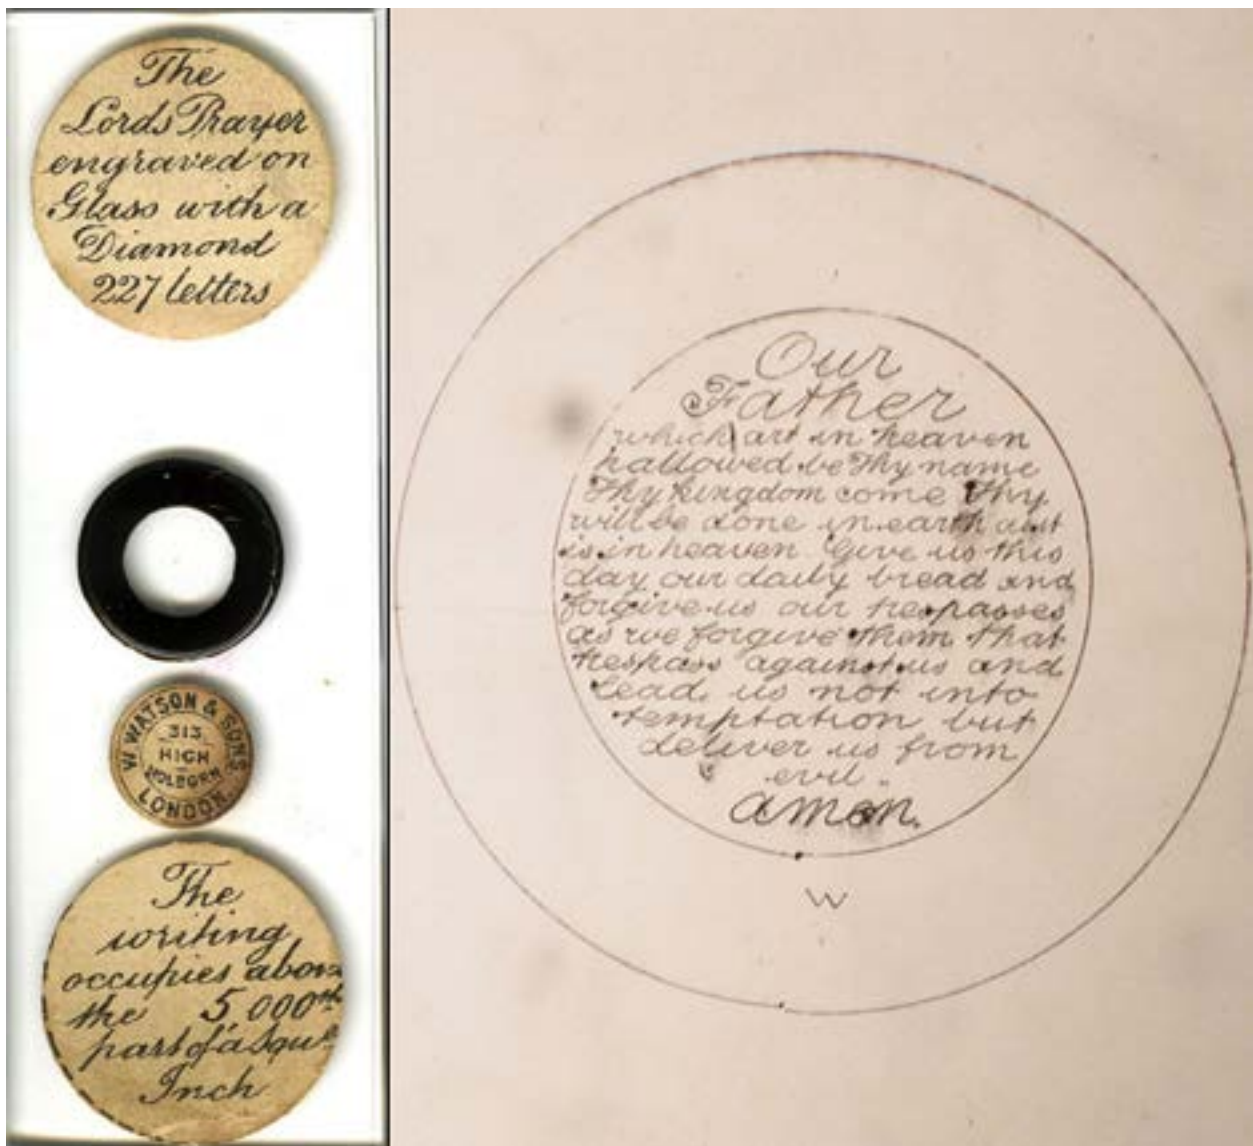 The
Lords Prayer
engraved on
Glass with a
Diamond
227 letters
W WATSON & SONS
313
HIGH
HOLBORN
LONDON
The
writing
occupies about
the 5,000th
part of a Squre
Inch
Our
Father
which art in heaven
hallowed be Thy name
Thy kingdom come Thy
will be done in earth as it
is in heaven Give us this
day our daily bread and
forgive us our trespasses
as we forgive them that
trespass against us and
lead us not into
temptation but
deliver us from
evil.
amen.
W